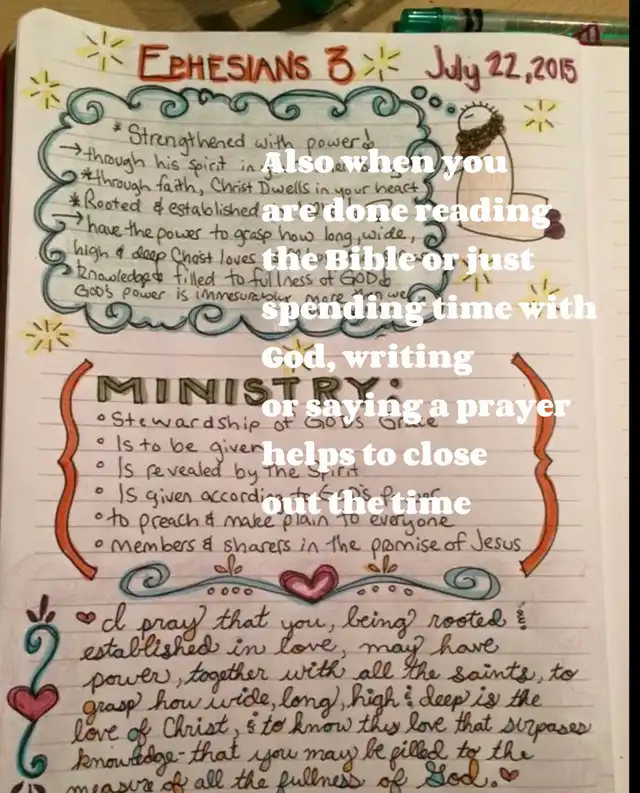 EPHESIANS 3
July 22, 2015
* Strengthened with power!
→through his spirit in
*through faith, Christ Dwells in your heart
*Rooted & established
→ have the power to grasp how long, wide,
high & deep Christ loves
knowledge & filled to fullness of GOD!
GOD's power is immesurably more
Also when you
are done reading
the Bible or just
spending time with
God, writing
or saying a prayer
helps to close
out the time
MINISTRY:
• Stewardship of GOD's Grace
• Is to be given
• Is revealed by the Spirit
• Is given according to GOD's
• to preach & make plain to everyone
• members & sharers in the promise of Jesus
I pray that you, being rooted &
established in love, may have
power, together with all the saints, to
grasp how wide, long, high & deep is the
love of Christ, & to know this love that surpases
knowledge- that you may be filled to the
measure of all the fullness of God.